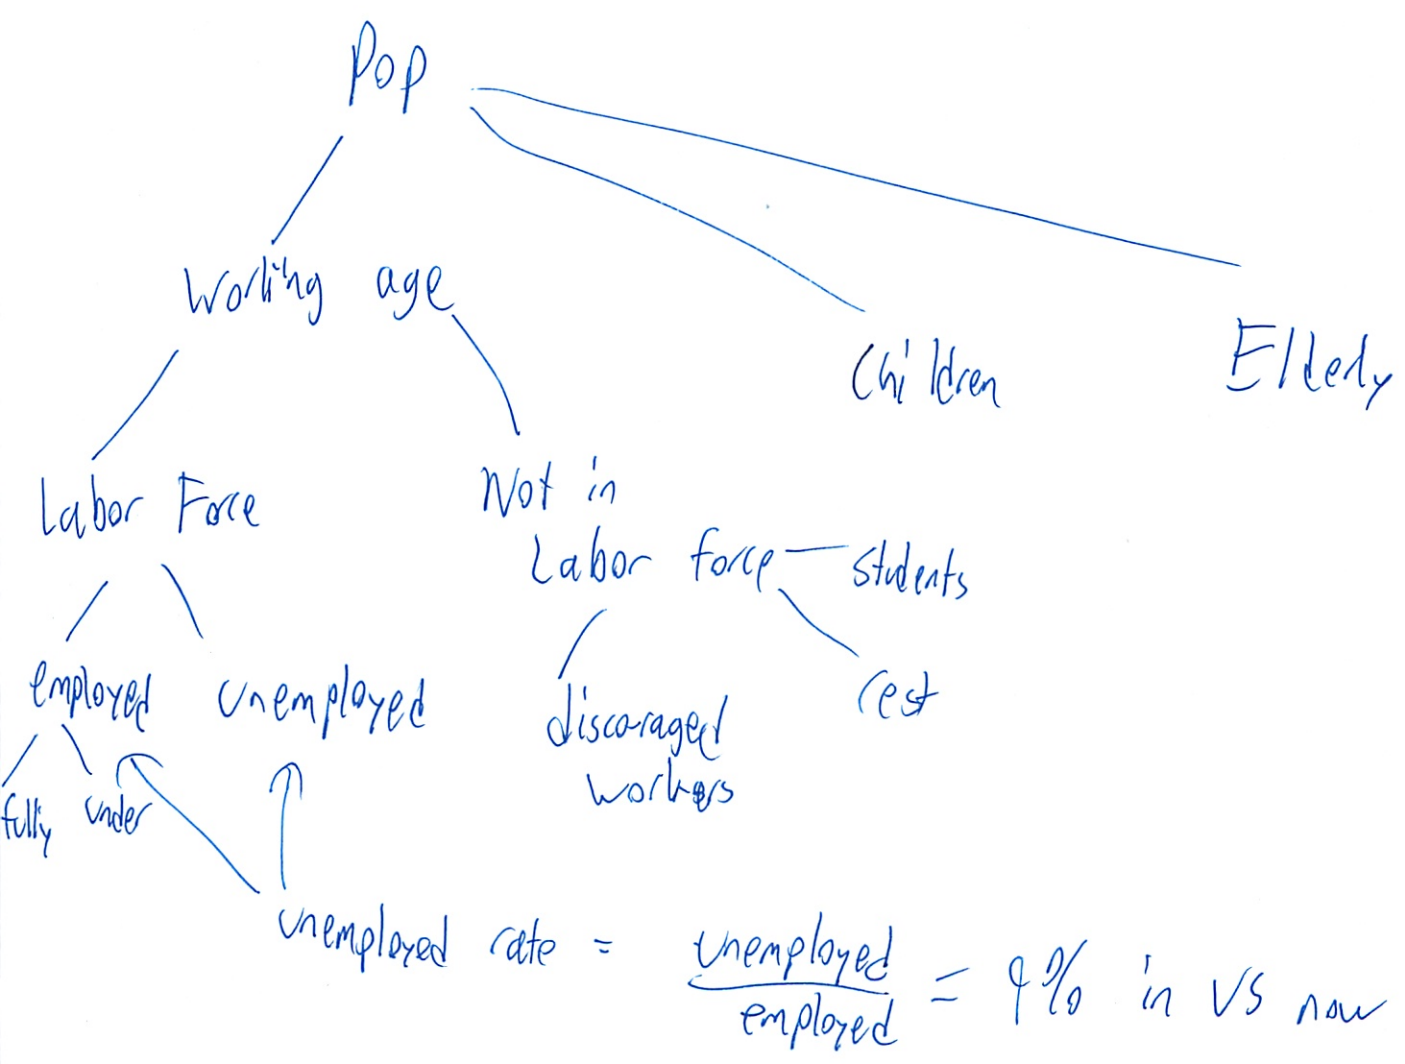 Pop
Working age
Children
Elderly
Labor Force
Not in
Labor force
students
employed
unemployed
discouraged
workers
rest
fully
under
unemployed rate = unemployed / employed = 9% in US now